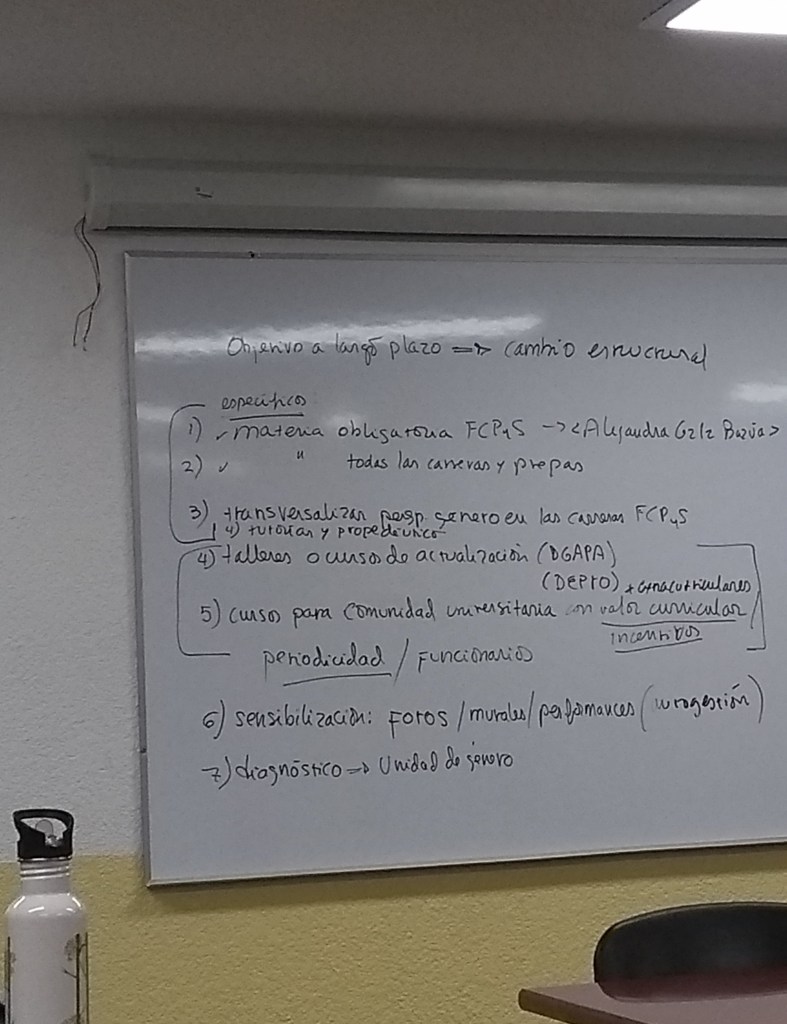 Objetivo a largo plazo => cambio estructural
específicos:
1) ✓ materia obligatoria FCPyS -> <Alejandra Glz Bazúa>
2) ✓ " todas las carreras y prepas
3) transversalizar persp. género en las carreras FCPyS
4) tutorías y propedéutico
4) talleres o cursos de actualización (DGAPA)
(DEPTO) + extracurriculares
5) cursos para comunidad universitaria con valor curricular /
incentivos
periodicidad / funcionarios
6) sensibilización: foros / murales / performances
7) diagnóstico -> Unidad de género